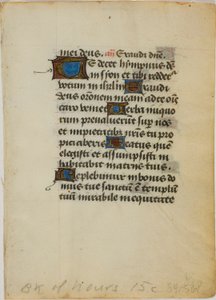 mei deus. an̄ Exaudi dn̄e.
Te decet hympnus de
in syon et tibi reddet̄
votum in ihrl̄m Exaudi
deus orōnem meam ad te om̄
caro veniet Verba iniquo
rum prevaluerunt sup̄ nos
et impietatib; nr̄is tu pro
piciaberis Beatus quem
elegisti et assumpsisti in
habitabit in atriis tuis.
Replebimur in bonis do
mus tue sanctū ē templū
tuū mirabile in equitate
Bk of Hours 15c